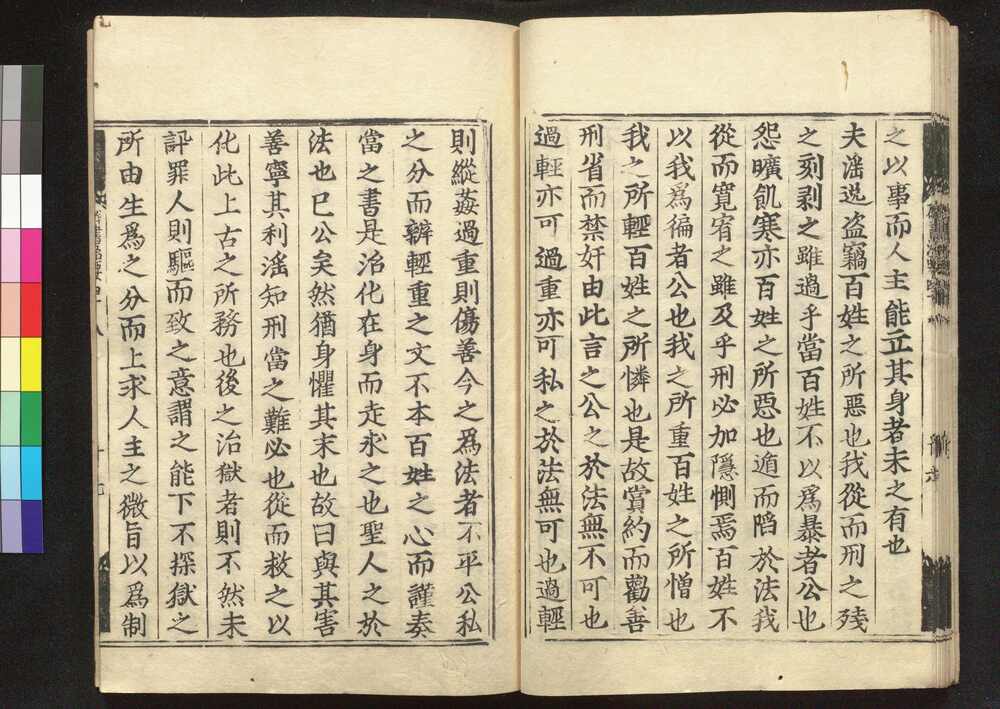 之以事而人主能立其身者未之有也
夫淫逸盗竊百姓之所惡也我從而刑之殘
之刻剥之雖過乎當百姓不以爲暴者公也
怨曠飢寒亦百姓之所惡也遁而陷於法我
從而寛宥之雖及乎刑必加隱惻焉百姓不
以我爲徧者公也我之所重百姓之所憎也
我之所輕百姓之所憐也是故賞約而勸善
刑省而禁奸由此言之公之於法無不可也
過輕亦可過重亦可私之於法無可也過輕
則縱姦過重則傷善今之爲法者不平公私
之分而辯輕重之文不本百姓之心而謹奏
當之書是治化在身而走求之也聖人之於
法也已公矣然猶身懼其末也故曰與其害
善寧其利淫知刑當之難必也從而救之以
化此上古之所務也後之治獄者則不然未
訊罪人則驅而致之意謂之能下不探獄之
所由生爲之分而上求人主之微旨以爲制